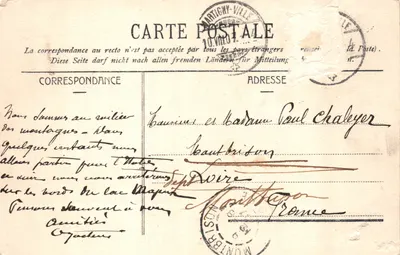 CARTE POSTALE
La correspondance au recto n'est pas acceptée par tous les pays étrangers
Diese Seite darf nicht nach allen fremden Ländern für Mitteilung
CORRESPONDANCE
ADRESSE
MARTIGNY-VILLE
Nous sommes au milieu
des montagnes - dans
quelques instants nous
allons partir pour l'Italie
et ce soir nous arriverons
sur les bords du lac Majeur
Pensons souvent à vous
amitiés
Monsieur et Madame Paul Chaleyer
Montbrison
Loire
Montbrison
France
MONTBRISON